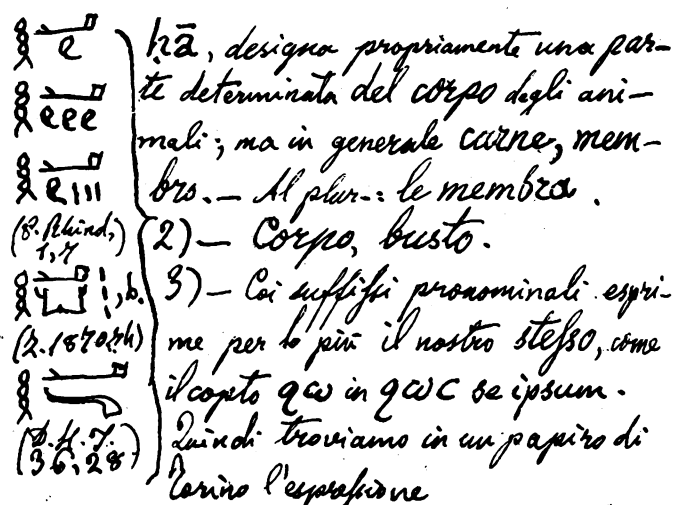 ḥā, designa propriamente una par-
te determinata del corpo degli ani-
mali; ma in generale carne, mem-
bro. — Al plur.: le membra.
(P. Rhind,
1, 7
2) — Corpo, busto.
3) — Coi suffissi pronominali espri-
(Z. 1870,
me per lo più il nostro stesso, come
il copto ϩⲱ in ϩⲱⲥ se ipsum.
(D. H. J.
36, 28)
Quindi troviamo in un papiro di
Torino l'espressione